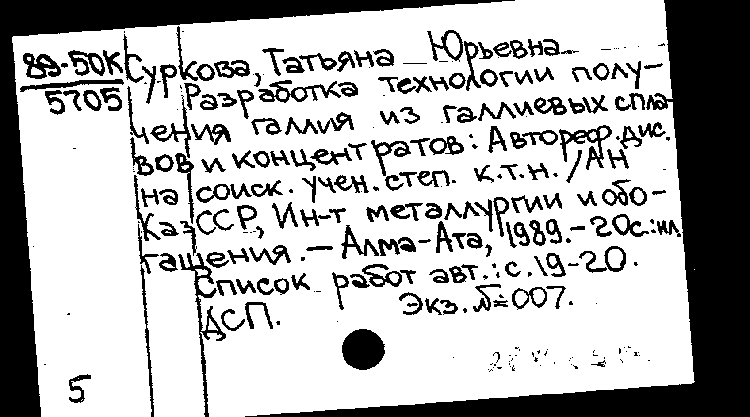 89-50К Суркова, Татьяна Юрьевна
5705 Разработка технологии полу-
чения галлия из галлиевых спла-
вов и концентратов: Автореф. дис.
на соиск. учен. степ. к.т.н. / АН
КазССР, Ин-т металлургии и обо-
гащения. — Алма-Ата, 1989. - 20с.: ил.
Список работ авт.: с. 19-20.
ДСП. Экз. № 007.
5